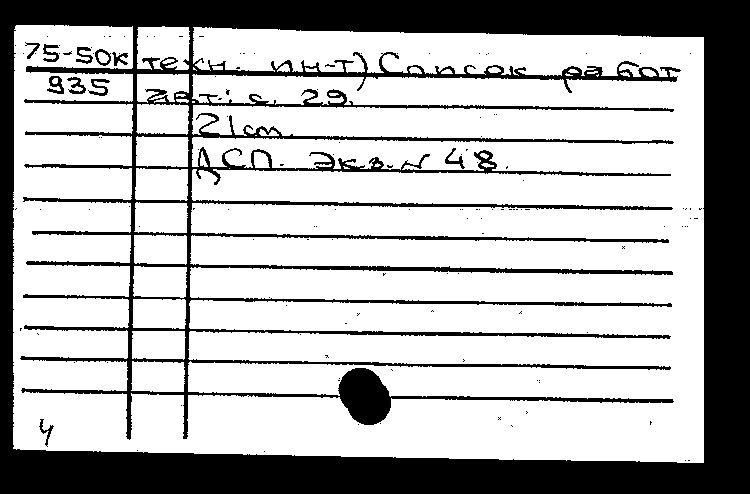 75-50к техн. ин-т) Список работ
935 авт.: с. 29.
21 cm.
ДСП. Экз. N 48.
4